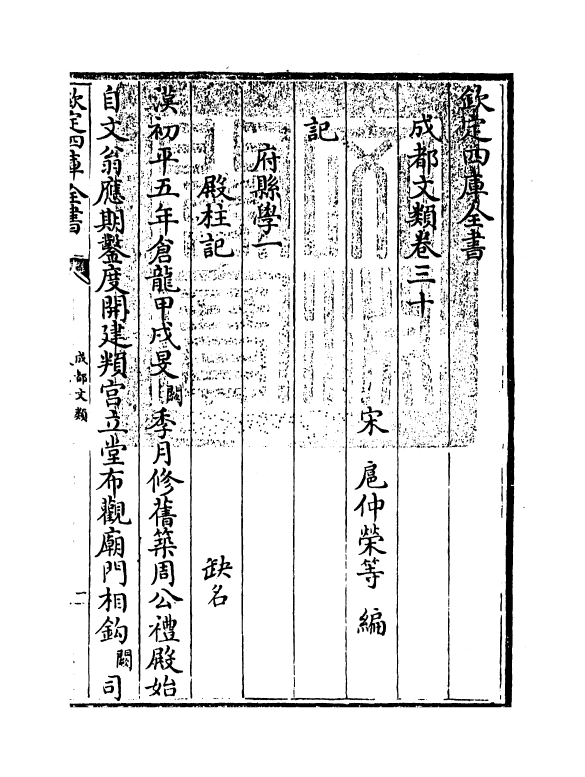 欽定四庫全書
成都文類卷三十
宋 扈仲榮等 編
記
府縣學一
殿柱記 缺名
漢初平五年倉龍甲戌旻闕季月修舊築周公禮殿始
自文翁應期鑿度開建頖宮立堂布觀廟門相鈎闕司
欽定四庫全書
成都文類